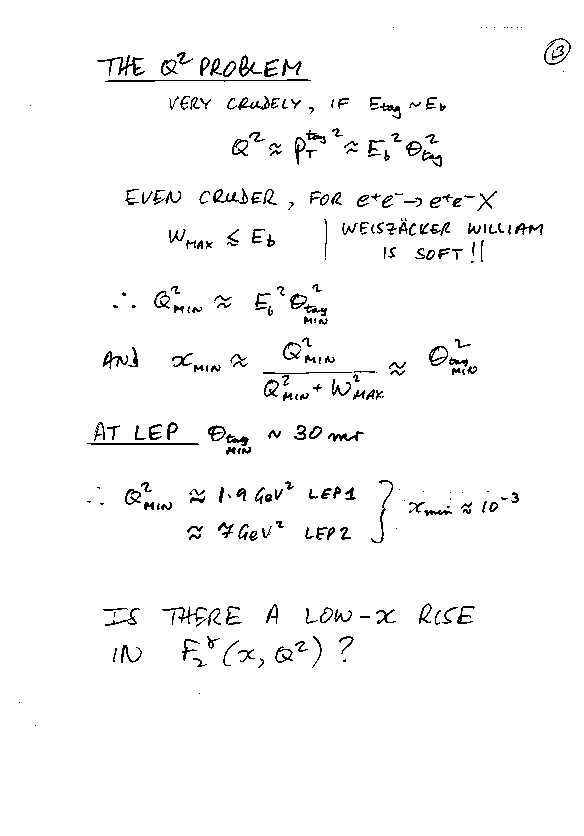 13
THE Q² PROBLEM
VERY CRUDELY, IF E_tag ~ E_b
Q² ≈ p_T^tag ² ≈ E_b² θ_tag²
EVEN CRUDER, FOR e⁺e⁻ → e⁺e⁻X
W_MAX ≤ E_b | WEISZÄCKER WILLIAM
IS SOFT!!
∴ Q²_MIN ≈ E_b² θ²_tag MIN
AND x_MIN ≈ Q²_MIN / (Q²_MIN + W²_MAX) ≈ θ²_tag MIN
AT LEP θ_tag MIN ~ 30 mr
∴ Q²_MIN ≈ 1.9 GeV² LEP1 } x_min ≈ 10⁻³
≈ 7 GeV² LEP2
IS THERE A LOW-x RISE
IN F₂^γ(x, Q²)?